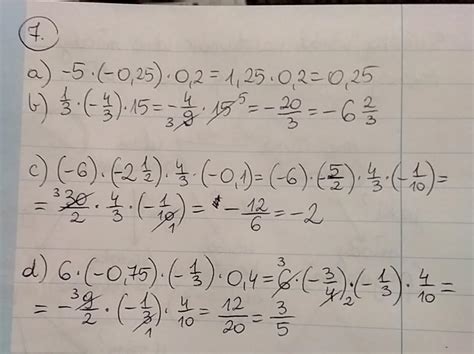 7.
a) -5·(-0,25)·0,2=1,25·0,2=0,25
b) 1/3·(-4/3)·15=-4/9 3·15 5=-20/3=-6 2/3
c) (-6)·(-2 1/2)·4/3·(-0,1)=(-6)·(-5/2)·4/3·(-1/10)=
= 3 30/2·4/3·(-1/10 1)=-12/6=-2
d) 6·(-0,75)·(-1/3)·0,4= 3 6·(-3/4 2)·(-1/3)·4/10=
=- 3 9/2·(-1/3 1)·4/10=12/20=3/5